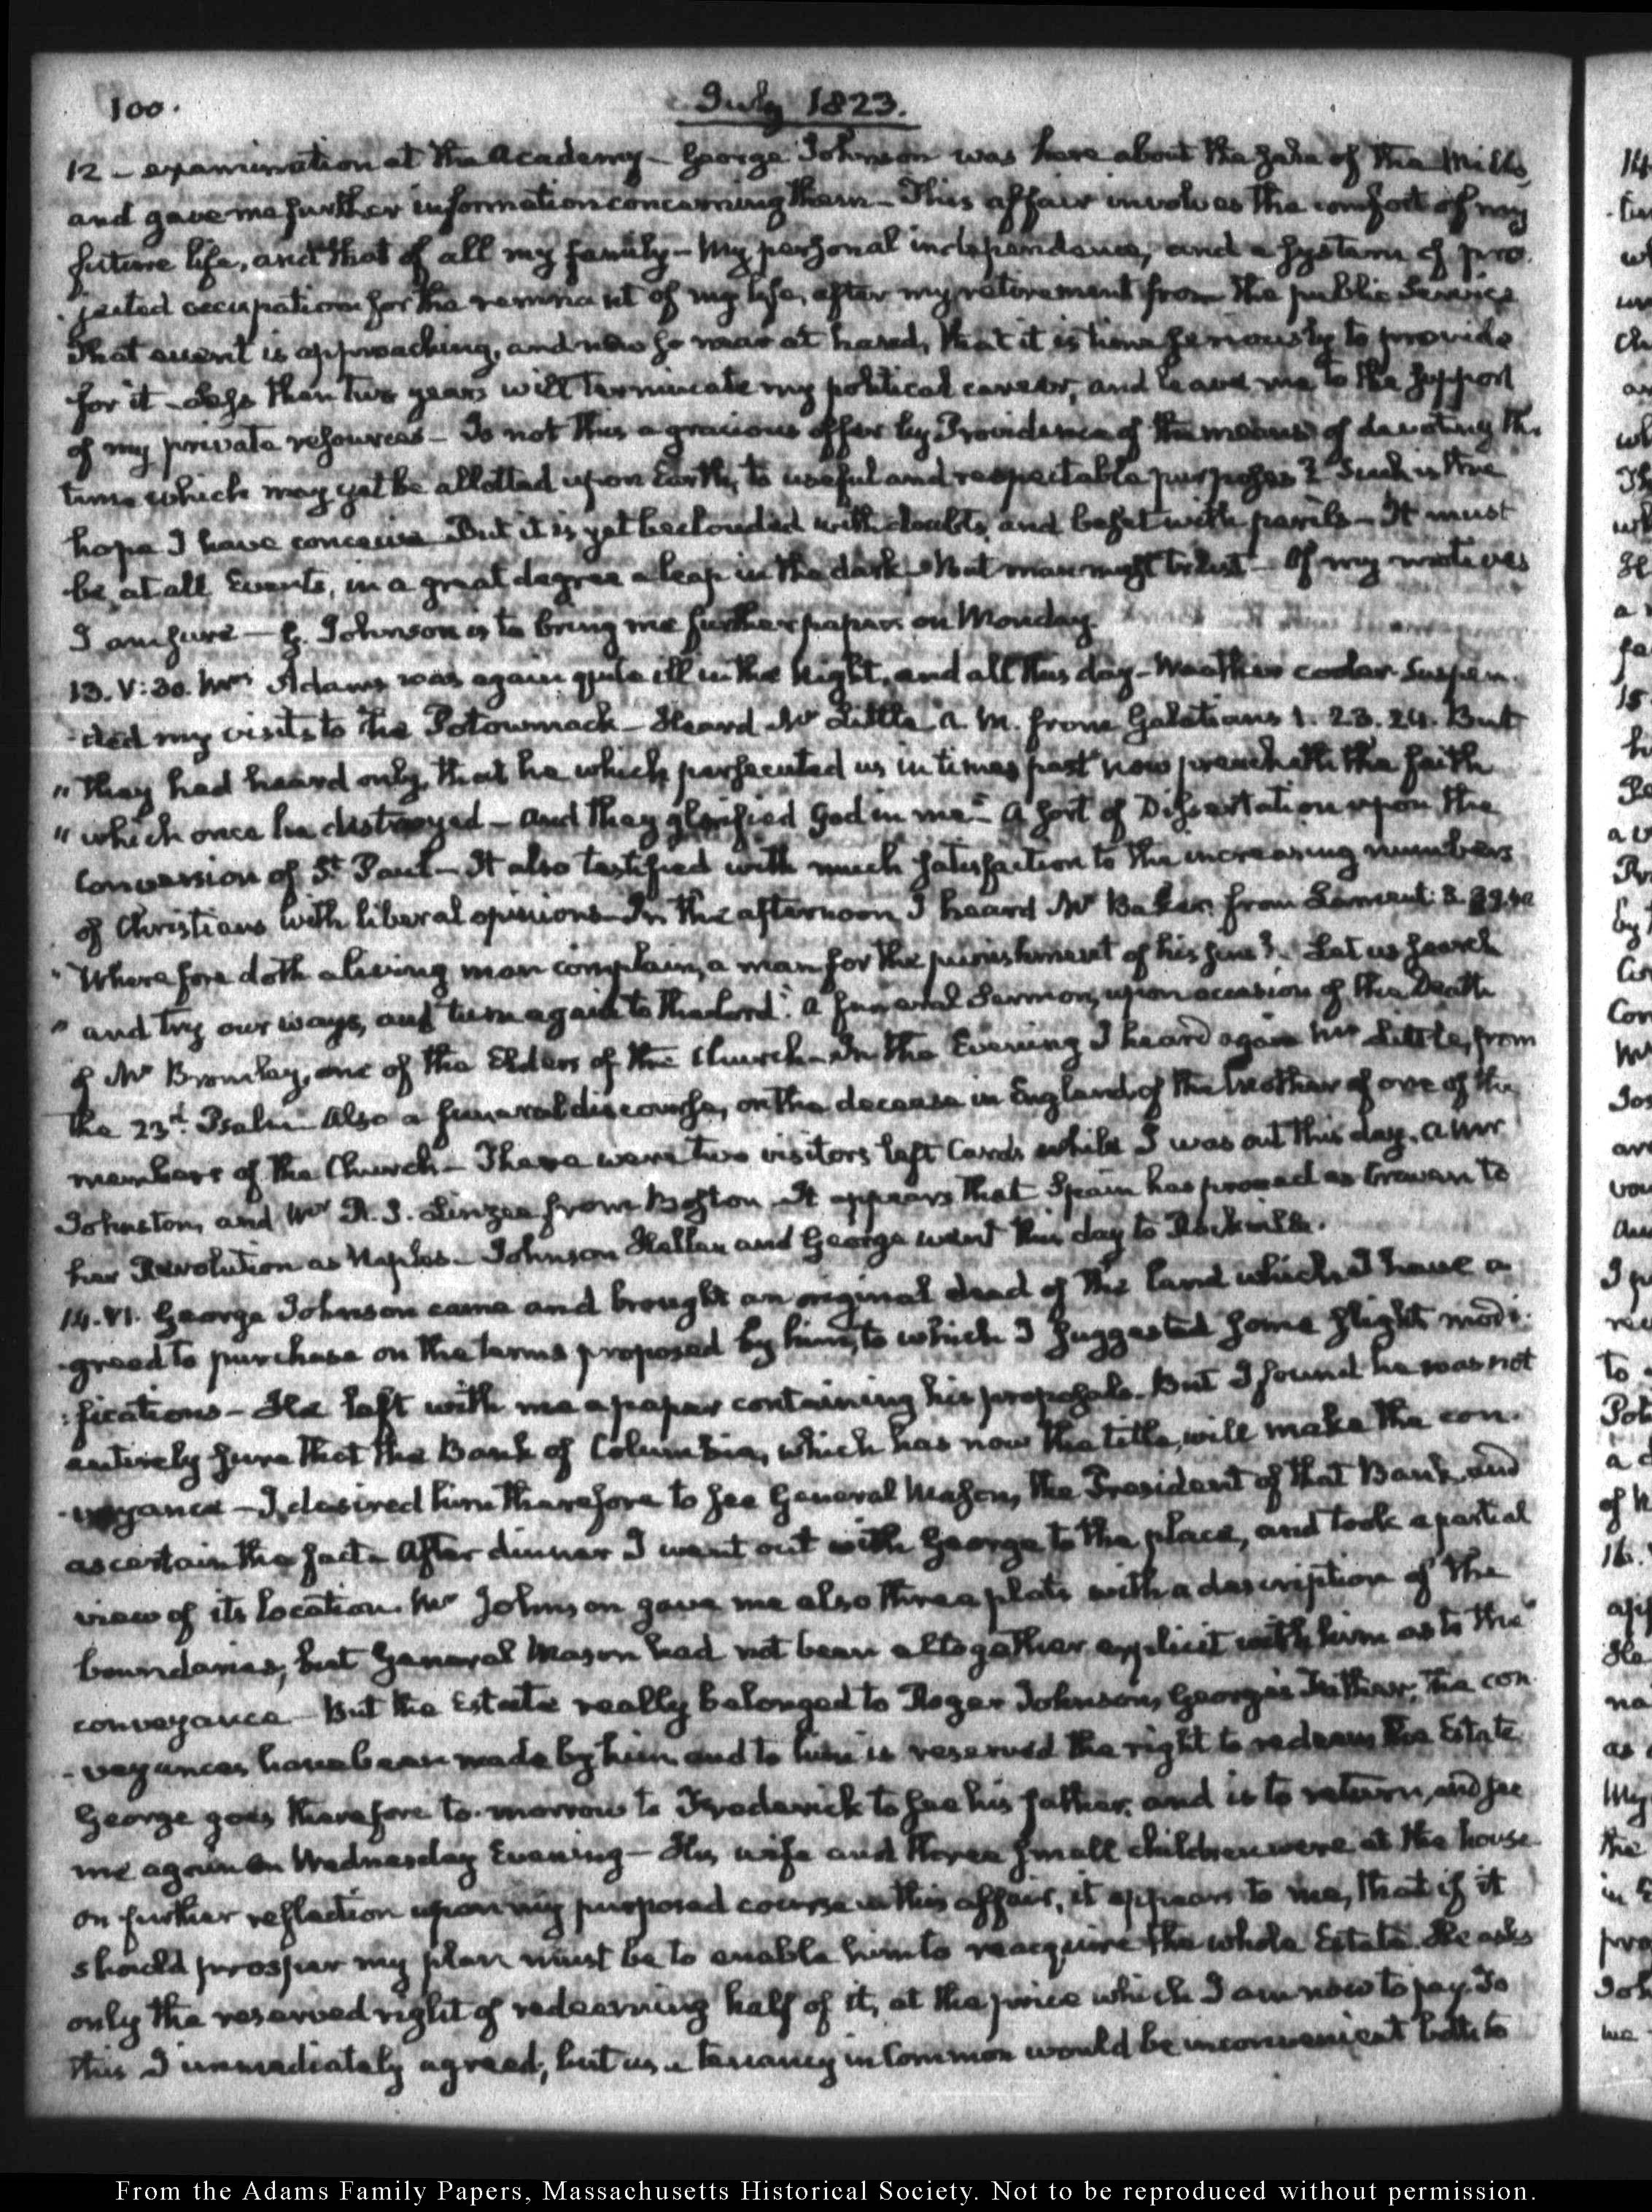 100.
July 1823.
12 - examination at the Academy - George Johnson was here about the sale of the Mills,
and gave me further information concerning them - This affair involves the comfort of my
future life, and that of all my family - My personal independence, and a system of pro-
-jected occupation for the remnant of my life, after my retirement from the public Service
That event is approaching, and now so near at hand, that it is time seriously to provide
for it - Less than two years will terminate my political career, and leave me to the support
of my private resources - Is not this a gracious offer by Providence of the means of devoting the
time which may yet be allotted upon Earth, to useful and respectable purposes? Such is the
hope I have conceived But it is yet beclouded with doubts, and beset with perils - It must
be, at all Events, in a great degree a leap in the dark - But man must trust - Of my motives
I am sure - G. Johnson is to bring me further papers on Monday.
13. V:30. Mrs Adams was again quite ill in the Night, and all this day - Weather cooler. Suspen-
-ded my visits to the Potowmack - Heard Mr Little A. M. from Galatians 1. 23. 24. But
" they had heard only, that he which persecuted us in times past now preacheth the faith
" which once he destroyed - and they glorified God in me" - A sort of Dissertation upon the
Conversion of St. Paul - It also testified with much satisfaction to the increasing numbers
of Christians with liberal opinions - In the afternoon I heard Mr Baker from Lament: 3. 39.40
" Wherefore doth a living man complain, a man for the punishment of his sins? Let us search
" and try our ways, and turn again to the Lord." A funeral Sermon, upon occasion of the Death
of Mr Bromley, one of the Elders of the Church - In the Evening I heard again Mr Little, from
the 23d. Psalm - Also a funeral discourse, on the decease in England, of the Mother of one of the
members of the Church - There were two visitors left Cards while I was out this day. A Mr
Johnston, and Mr R. I. Linzee from Boston - It appears that Spain has proved as Craven to
her Revolution as Naples - Johnson Hellen and George went this day to Rockville.
14. VI. George Johnson came and brought an original deed of the land which I have a-
-greed to purchase on the terms proposed by him, to which I suggested some slight modi-
:fications - He left with me a paper containing his proposals. But I found he was not
entirely sure that the Bank of Columbia, which has now the title, will make the con-
-veyance - I desired him therefore to see General Mason, the President of that Bank and
ascertain the fact - After dinner I went out with George to the place, and took a partial
view of its location. Mr Johnson gave me also three plats with a description of the
boundaries, but General Mason had not been altogether explicit with him as to the
conveyance - But the Estate really belonged to Roger Johnson, George's Father, the con-
-veyances have been made by him and to him is reserved the right to redeem the Estate
George goes therefore to-morrow to Frederick to see his father, and is to return, and see
me again on Wednesday Evening - His wife and three small children were at the house
on further reflection upon my proposed course in this affair, it appears to me, that if it
should prosper my plan must be to enable him to reacquire the whole Estate. He asks
only the reserved right of redeeming half of it, at the price which I am now to pay. To
this I immediately agreed, but as a tenancy in Common would be inconvenient both to
From the Adams Family Papers, Massachusetts Historical Society. Not to be reproduced without permission.